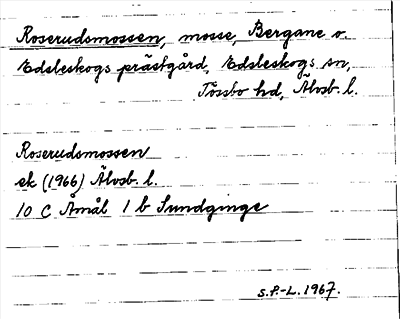 Roserudsmossen, mosse, Bergane o.
Edsleskogs prästgård, Edsleskogs sn,
Tössbo hd, Älvsb. l.
Roserudsmossen
ek (1966) Älvsb. l.
10 C Åmål 1 b Sundginge
S.F.-L. 1967.